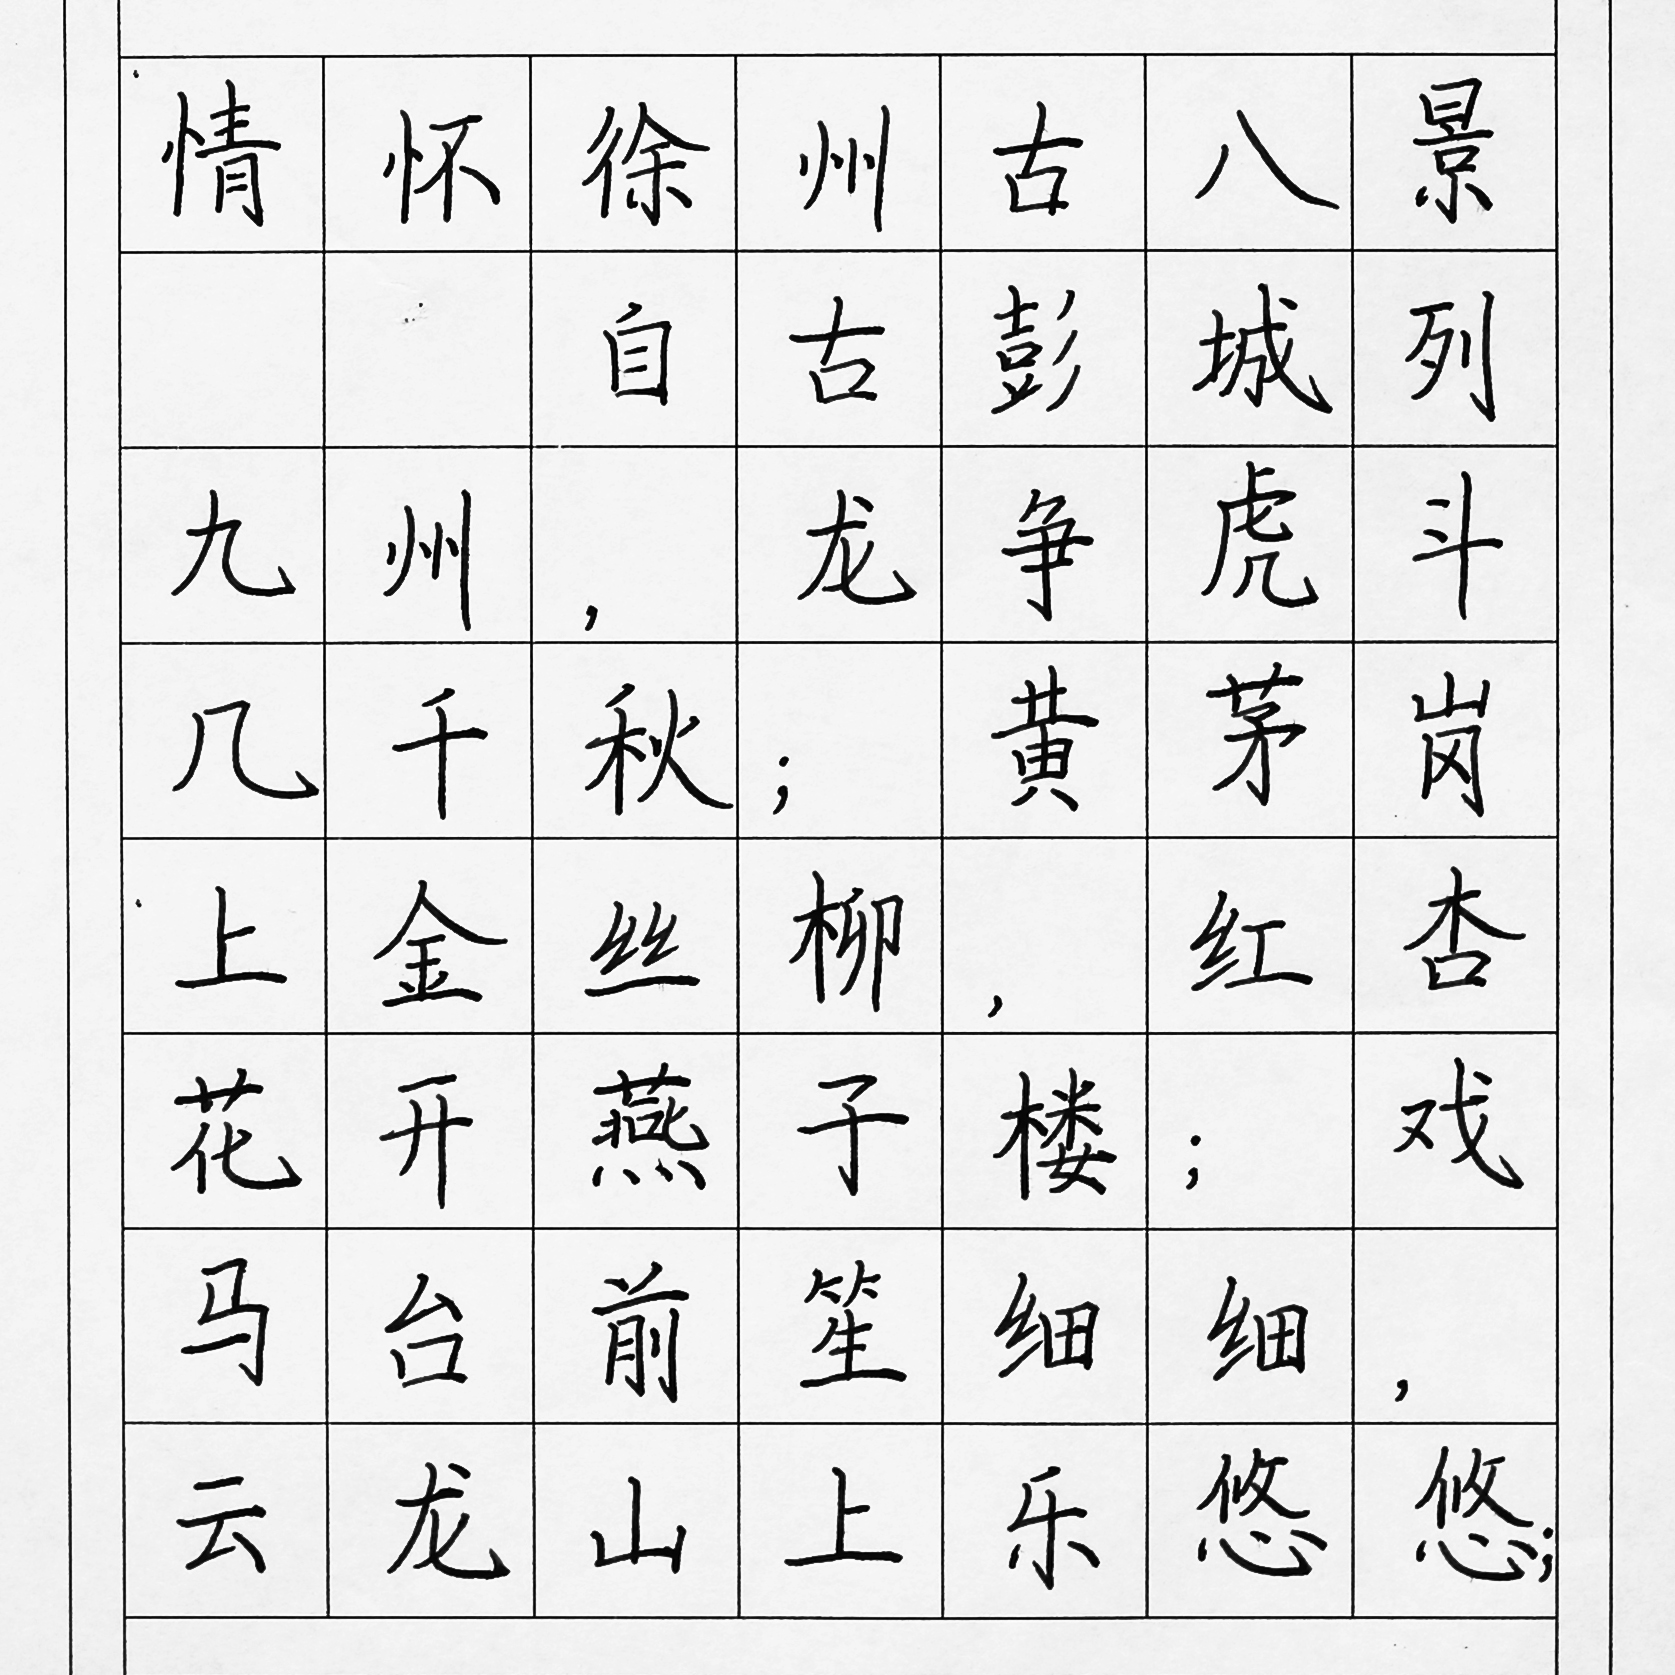 情怀徐州古八景
自古彭城列
九州，龙争虎斗
几千秋；黄茅岗
上金丝柳，红杏
花开燕子楼；戏
马台前笙细细，
云龙山上乐悠悠；